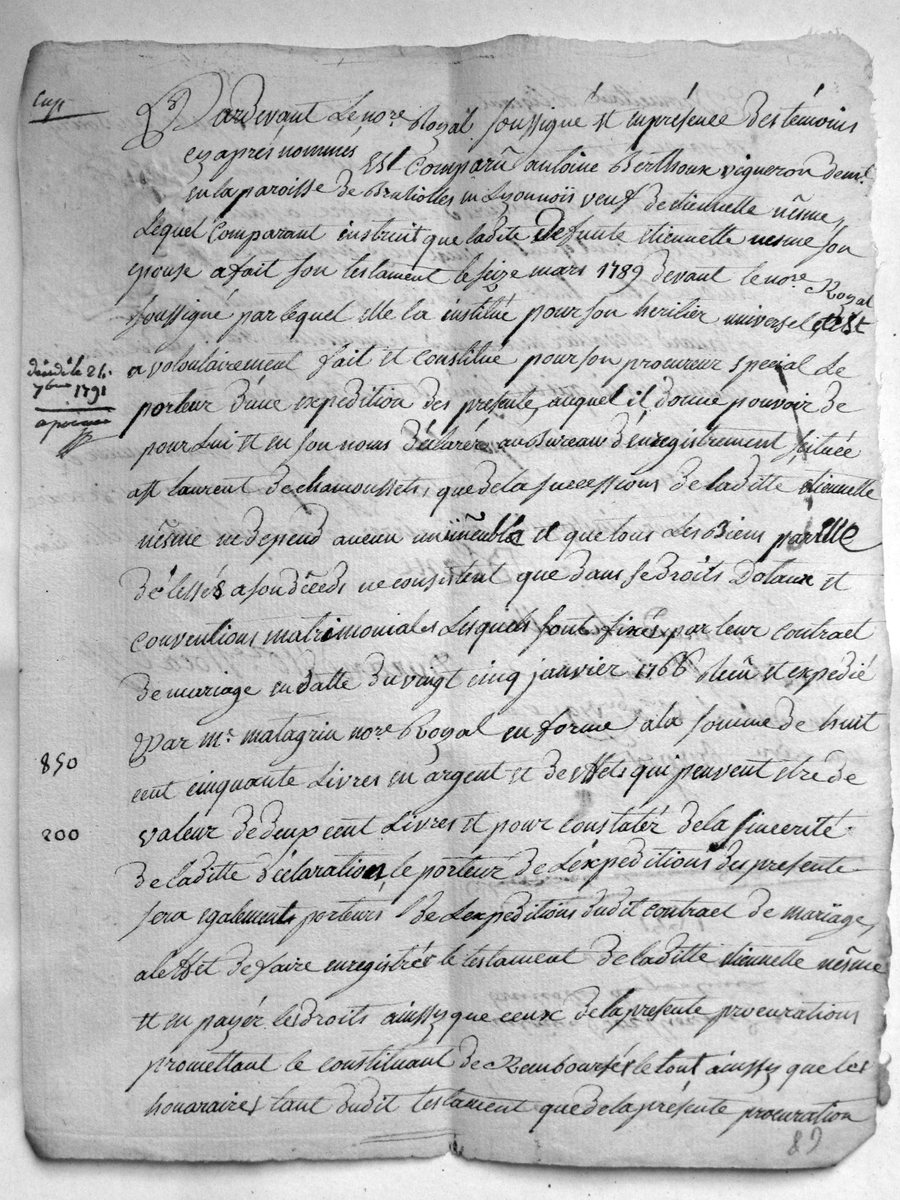 Exp
Pardevant Le no.re Royal soussigné et enprésence des témoins
cy après nommés Est Comparû antoine Berthoux vigneron dem.t
en la paroisse de Brullioles en Lyonnois veuf de etiennette nêsme,
Lequel Comparant instruit que ladite defunte etiennette nesme son
epouse a fait son testament le seize mars 1789 devant le no.re Royal
soussigné par lequel elle la institüé pour son heritier universel
a volontairement fait et constitué pour son procureur special Le
décédé le 24.
7bre 1791
porteur d'une expedition des presente, auquel il donne pouvoir de
pour Lui et en son nom Déclarér au Bureau d'enregistrement scituée
a st Laurent de chamoussets, que de la successions de laditte etiennette
nêsme ne depend aucun immeuble et que tous Les Biens par Elle
Délessés a son décèds ne consistent que dans se droits Dotaux et
conventions matrimoniales Lesquels sont fixés par leur contract
de mariage en datte du vingt cinq janvier 1766 et expedié
Par m.e matagrin no.re Royal en forme a la somme de huit
850
cent cinquante Livres en argent et d'effets qui peuvent etre de
200
valeur de deux cent Livres et pour constatér de la sincerité
de laditte déclaration, le porteur de L'expeditions des presente
sera egalement porteurs de L'expeditions dudit contract de mariage,
a l'effet de faire enregistrér le testament de laditte etiennette nêsme
et en payér les droits ainssy que ceux de la presente procurations
promettant le constituant de Remboursér le tout ainssy que les
honoraires tant dudit testament que de la présente procuration
89